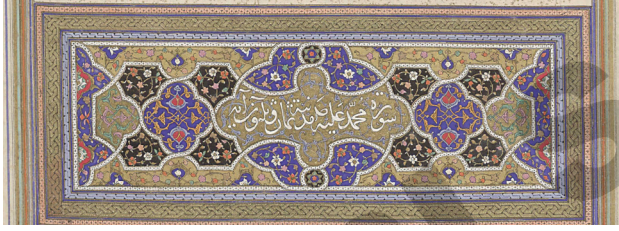 سورة محمد عليه مدنية ثمان وثلثون آية